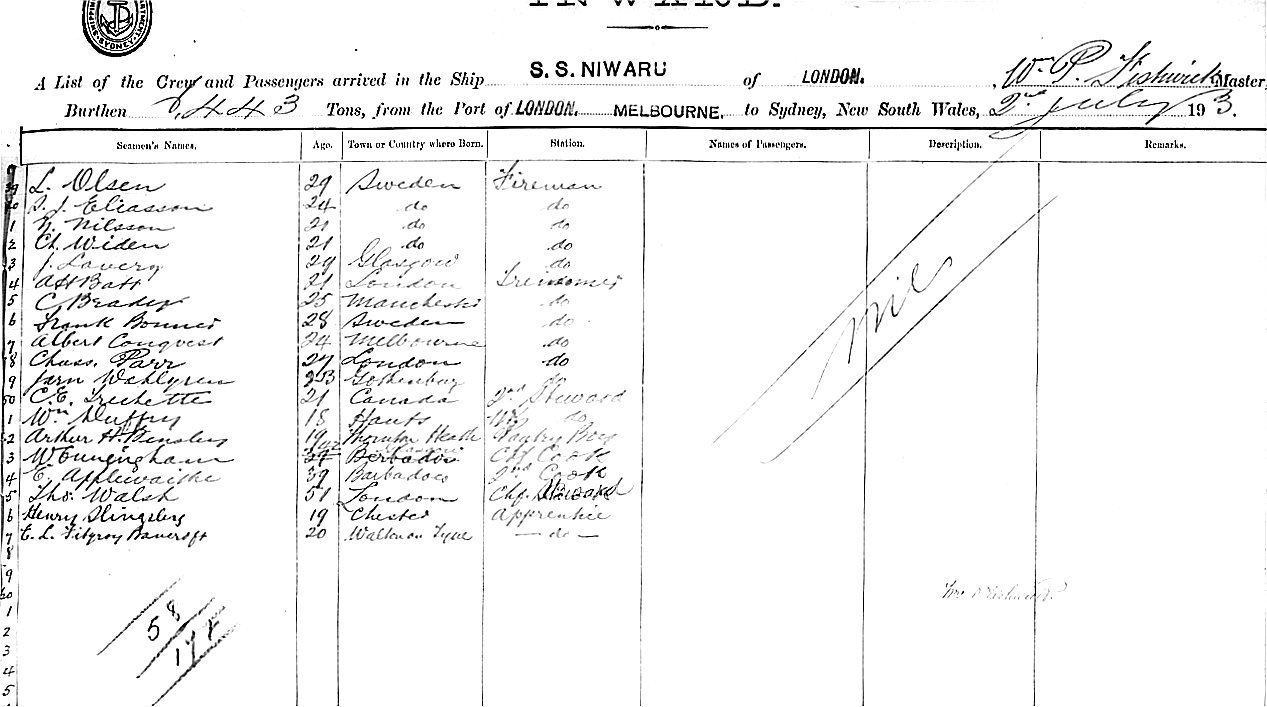 INWARD.
SYDNEY
A List of the Crew and Passengers arrived in the Ship S. S. NIWARU of LONDON. , Wm P. Fishwick Master,
Burthen 8,443 Tons, from the Port of LONDON. MELBOURNE. to Sydney, New South Wales, 2nd July 193.
Seamen's Names. Age. Town or Country where Born. Station. Names of Passengers. Description. Remarks.
39 L. Olsen 29 Sweden Fireman
S. J. Eliasson 24 do do
1 N. Nilsson 21 do do
2 Ch. Widen 21 do do
3 J. Lavery 29 Glasgow do
4 Batt 21 London Trimmer
5 C. Brady 25 Manchester do
6 Frank Bonner 28 Sweden do
7 Albert Conquest 24 Melbourne do
8 Chass. Parr 27 London do
9 Wahlgren Gothenburg do
50 C. E. Frechette 21 Canada 2nd Steward
1 Wm Duffy 18 Hants do
2 Arthur H. Bensley 19 Thornton Heath Pantry Boy
3 W Cunningham Barbados Chf. Cook
4 E. Applewaithe 39 Barbadoes 2nd Cook
5 Thos. Walsh 51 London Chf. Steward
6 Henry Slingsby 19 Chester Apprentice
7 E. L. Fitzroy Bancroft 20 Walker on Tyne — do —
8
9
1
2
3
4
5
Nil
58
17 F